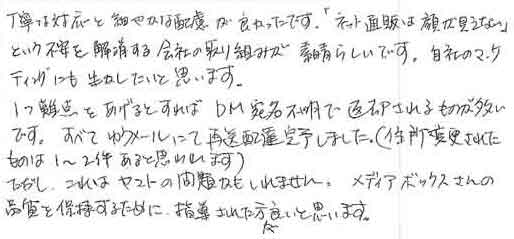 丁寧な対応と細やかな配慮が良かったです。「ネット通販は顔が見えない」
という不安を解消する会社の取り組みが素晴らしいです。自社のマーケ
ティングにも生かしたいと思います。
1つ難点をあげるとすればDM宛名不明で返却されるものが多い
です。すべてゆうメールにて再送配達完了しました。(住所変更された
ものは1~2件あると思われます)
ただし、これはヤマトの問題かもしれません。メディアボックスさんの
品質を保持するために、指導された方が良いと思います。